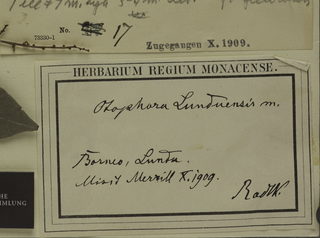 No. 17
73330-1
Zugegangen X. 1909.
HERBARIUM REGIUM MONACENSE.
Otophora Lunduensis m.
Borneo, Lundu.
Misit Merrill X. 1909.
Radlk.
HE
MMLUNG